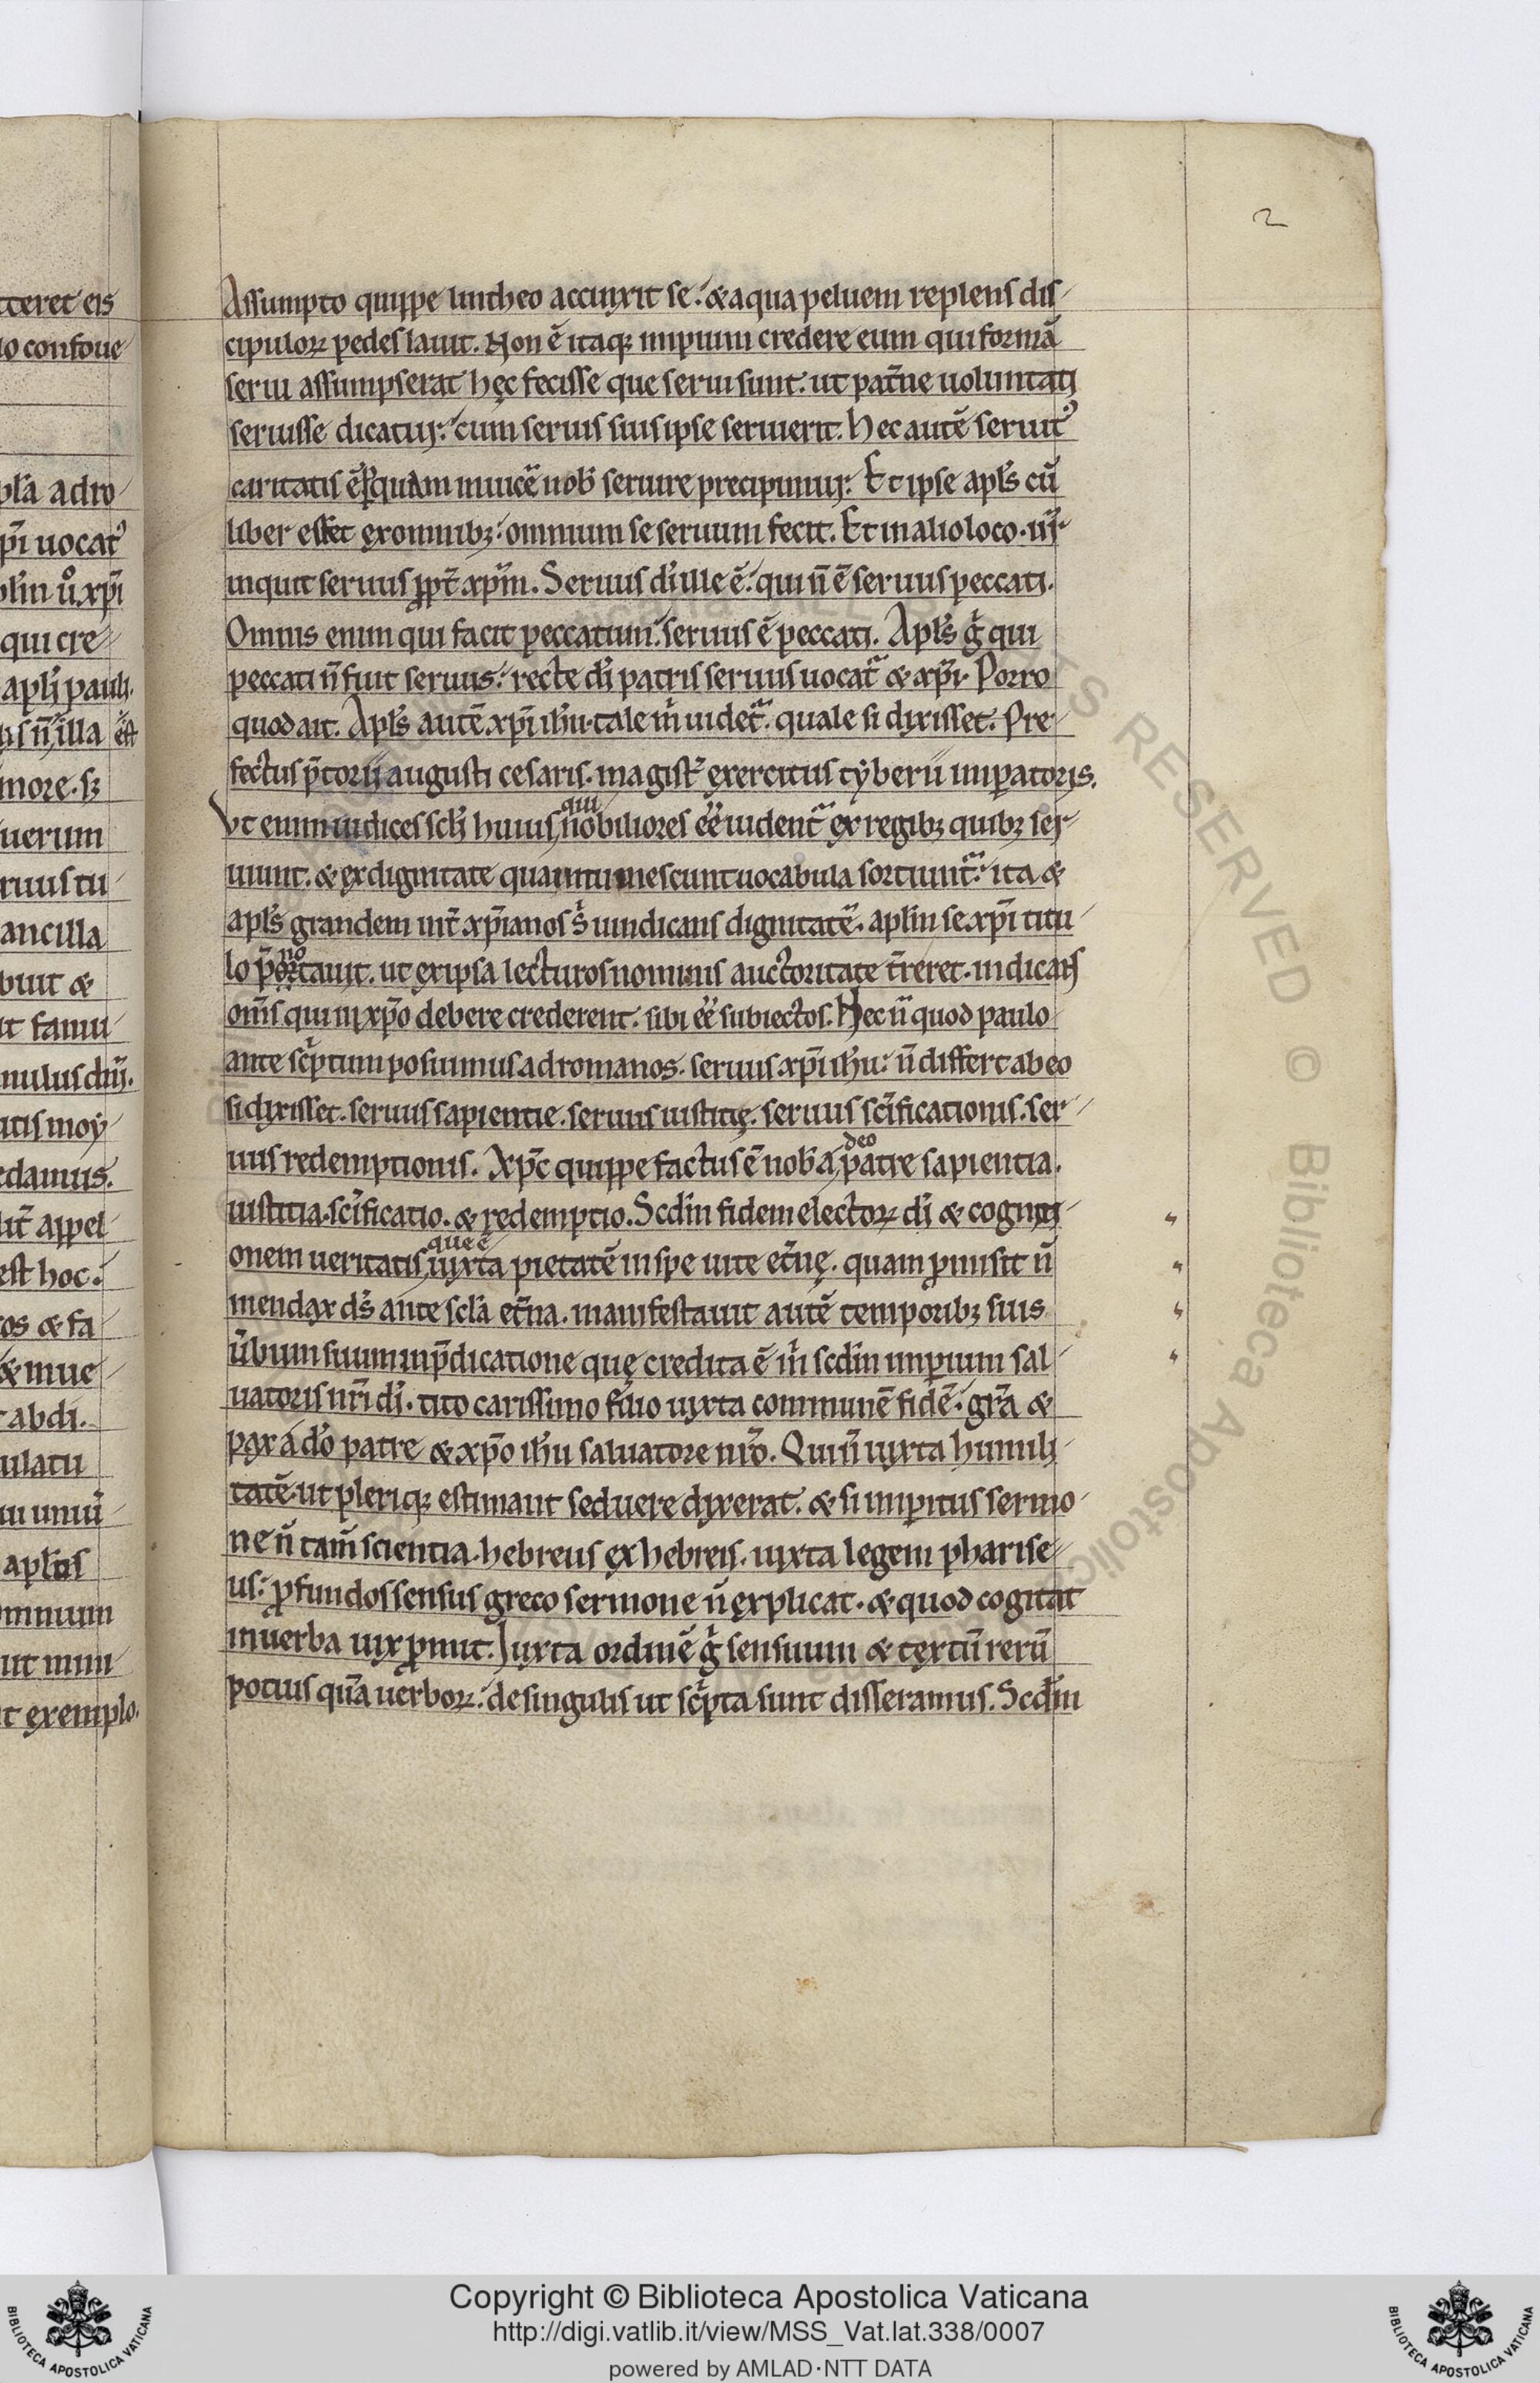 2
Assumpto quippe lintheo accinxit se. & aqua peluem replens dis-
cipuloꝝ pedes lauit. Non ē itaqꝫ impium credere eum qui formā
serui assumpserat hęc fecisse que serui sunt. ut pat̄ne uoluntati
seruisse dicatur. cum seruis suis ipse seruierit. Hec autē seruitꝰ
caritatis ē ꝑ quam inuicē nob̄ seruire precipimur. Et ipse apl̄s cū
liber esset ex omnibꝫ. omnium se seruum fecit. Et in alio loco. ur̄
inquit seruus ꝓpt̄ xp̄m. Seruus dī ille ē. qui n̄ ē seruus peccati.
Omnis enim qui facit peccatum. seruus ē peccati. Apl̄s gͥ qui
peccati n̄ fuit seruus. recte dī patris seruus uocat᷑ & xp̄i. Porro
quod ait. Apl̄s autē xp̄i ih̄u. tale m̄ uidet᷑. quale si dixisset. Pre-
fectus p̄torii augusti cesaris. magist̄ exercitus tyberii imꝑatoris.
Vt enim iudices scl̄i huius qui nobiliores ēē uident᷑ ex regibꝫ quibꝫ ser-
uiunt. & ex dignitate qua intumescunt uocabula sortiunt᷑. ita &
apl̄s grandem int̄ xp̄ianos s̄ uindicans dignitatē. apl̄m se xp̄i titu-
lo p̄notauit. ut ex ipsa lecturos nominis auctoritate t̄reret. indicans
om̄s qui in xp̄o debere crederent. sibi ēē subiectos. Hec ū quod paulo
ante scͥptum posuimus ad romanos. seruus xp̄i ih̄u. n̄ differt ab eo
si dixisset. seruus sapientie. seruus iustitię. seruus sc̄ificationis. ser-
uus redemptionis. Xp̄c quippe factus ē nob̄ a deo patre sapientia.
iustitia. sc̄ificatio. & redemptio. Scd̄m fidem electoꝝ dī & cogniti-
onem ueritatis que ē iuxta pietatē in spe uite et̄nę. quam ꝓmisit n̄
mendax ds̄ ante scl̄a et̄na. manifestauit autē temporibꝫ suis
ūbum suum in p̄dicatione quę credita ē m̄ scd̄m imꝑium sal-
uatoris nr̄i dī. tito carissimo filio iuxta communē fidē. gr̄a &
pax a dō patre & xp̄o ih̄u saluatore nr̄o. Qui n̄ iuxta humili-
tatē. ut pleriqꝫ estimant sed uere dixerat. & si imꝑitus sermo-
ne n̄ tam̄ scientia. hebreus ex hebreis. iuxta legem pharise-
us. ꝓfundos sensus greco sermone n̄ explicat. & quod cogitat
in uerba uix ꝓmit. Iuxta ordinē gͥ sensuum & textū rerū
potius qͣm uerboꝝ. de singulis ut scͥpta sunt disseramus. Scd̄m
Copyright © Biblioteca Apostolica Vaticana
http://digi.vatlib.it/view/MSS_Vat.lat.338/0007
powered by AMLAD·NTT DATA